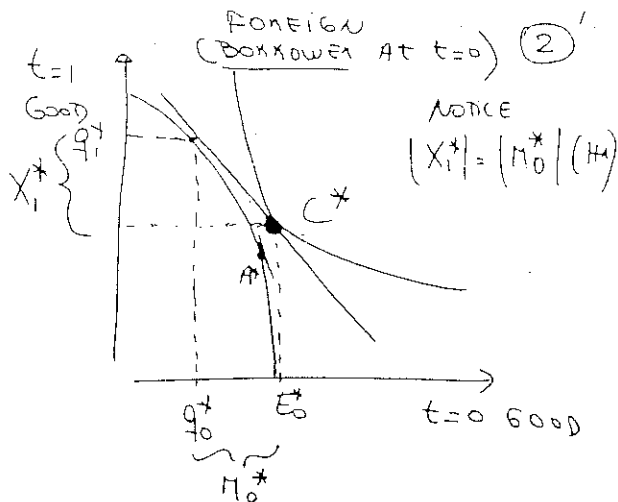 FOREIGN
(BORROWER At t=0) 2'
t=1
GOOD
NOTICE
q₁*
|X₁*| = |M₀*| (1+r)
X₁*
C*
A*
q₀*
E₀*
t=0 GOOD
M₀*